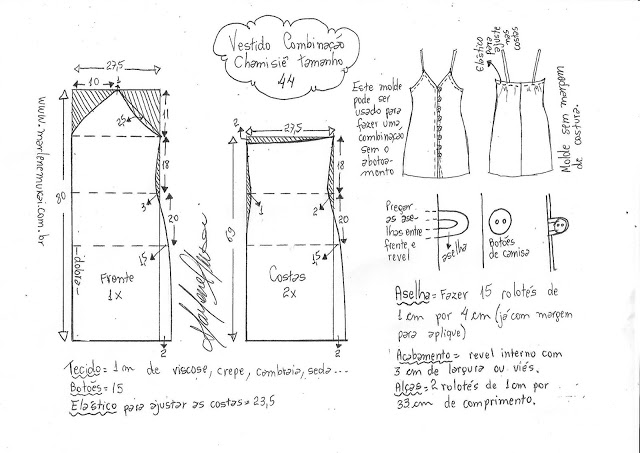 Vestido Combinação
Chamisiê tamanho
44
27,5
10
1
25
11
18
3
20
80
-dobra-
Frente
1x
1,5
2
www.marlenemukai.com.br
2
27,5
18
1
2
20
69
1,5
Costas
2x
2
Este molde
pode ser
usado para
fazer uma
combinação
sem o
abotoa-
mento
Elástico
para
ajuste
nas
costas
Molde sem margem
de costura.
Pregar
as ase-
lhas entre
frente e
revel
aselha
Botões
de camisa
Aselha = Fazer 15 rolotés de
1 cm por 4 cm (já com margem
para aplique)
Acabamento = revel interno com
3 cm de largura ou viés.
Alças = 2 rolotés de 1 cm por
33 cm de comprimento.
Tecido = 1 m de viscose, crepe, cambraia, seda...
Botões = 15
Elástico para ajustar as costas = 23,5